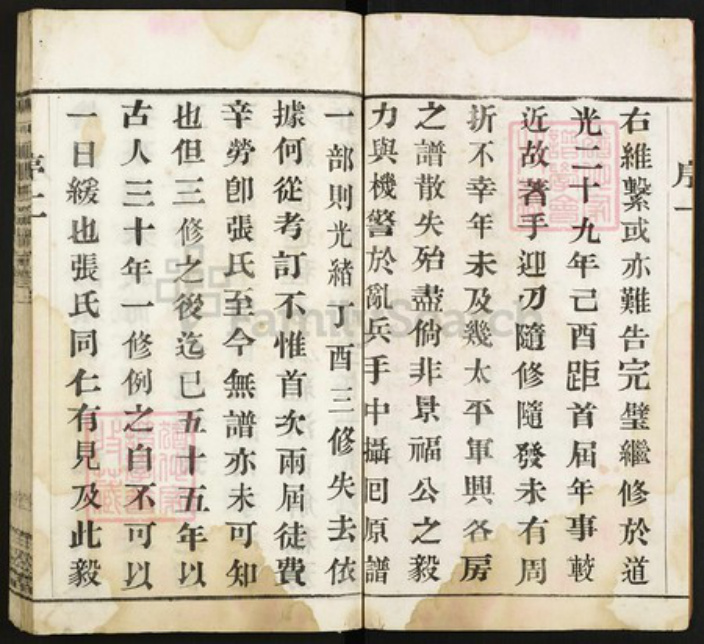 序一
右維繫或亦難告完璧繼修於道
光二十九年己酉距首屆年事較
近故著手迎刃隨修隨發未有周
折不幸年未及幾太平軍興各房
之譜散失殆盡倘非景福公之毅
力與機警於亂兵手中攝回原譜
一部則光緒丁酉三修失去依
據何從考訂不惟首次兩屆徒費
辛勞卽張氏至今無譜亦未可知
也但三修之後迄已五十五年以
古人三十年一修例之自不可以
一日緩也張氏同仁有見及此毅
序二
FamilySearch